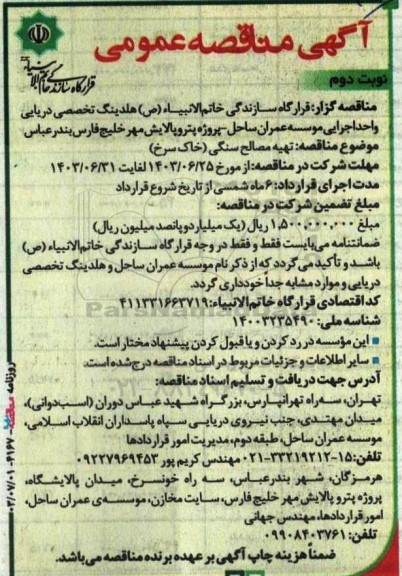 آگهی مناقصه عمومی
قرارگاه سازندگی خاتم الانبیاء
نوبت دوم
مناقصه گزار: قرارگاه سازندگی خاتم‌الانبیاء (ص) هلدینگ تخصصی دریایی
واحد اجرایی موسسه عمران ساحل-پروژه پتروپالایش مهر خلیج فارس بندرعباس
موضوع مناقصه: تهیه مصالح سنگی (خاک سرخ)
مهلت شرکت در مناقصه: از مورخ ۱۴۰۳/۰۶/۲۵ لغایت ۱۴۰۳/۰۶/۳۱
مدت اجرای قرارداد: ۶ ماه شمسی از تاریخ شروع قرارداد
مبلغ تضمین شرکت در مناقصه:
مبلغ ۱,۵۰۰,۰۰۰,۰۰۰ ریال (یک میلیارد و پانصد میلیون ریال)
ضمانتنامه می‌بایست فقط و فقط در وجه قرارگاه سازندگی خاتم‌الانبیاء (ص)
باشد و تأکید می‌گردد که از ذکر نام موسسه عمران ساحل و هلدینگ تخصصی
دریایی و موارد مشابه جداً خودداری گردد.
کد اقتصادی قرارگاه خاتم الانبیاء: ۴۱۱۳۳۱۶۶۳۷۱۹
شناسه ملی: ۱۴۰۰۳۲۳۵۴۹۰
■ این مؤسسه در رد کردن و یا قبول کردن پیشنهاد مختار است.
■ سایر اطلاعات و جزئیات مربوط در اسناد مناقصه درج شده است.
آدرس جهت دریافت و تسلیم اسناد مناقصه:
تهران، سه راه تهرانپارس، بزرگراه شهید عباس دوران (اسب‌دوانی)،
میدان مهتدی، جنب نیروی دریایی سپاه پاسداران انقلاب اسلامی،
موسسه عمران ساحل، طبقه دوم، مدیریت امور قراردادها
تلفن: ۱۵-۳۳۲۱۹۲۱۲-۰۲۱ مهندس کریم پور ۰۹۲۲۷۹۶۹۴۵۳
هرمزگان، شهر بندرعباس، سه راه خونسرخ، میدان پالایشگاه،
پروژه پترو پالایش مهر خلیج فارس، سایت مخازن، موسسه‌ی عمران ساحل،
امور قراردادها، مهندس جهانی
تلفن: ۰۹۹۰۸۴۰۳۷۶۱
ضمناً هزینه چاپ آگهی بر عهده برنده مناقصه می‌باشد.
روزنامه مناقصه - ۴۱۶۷ - ۰۳/۰۷/۰۱